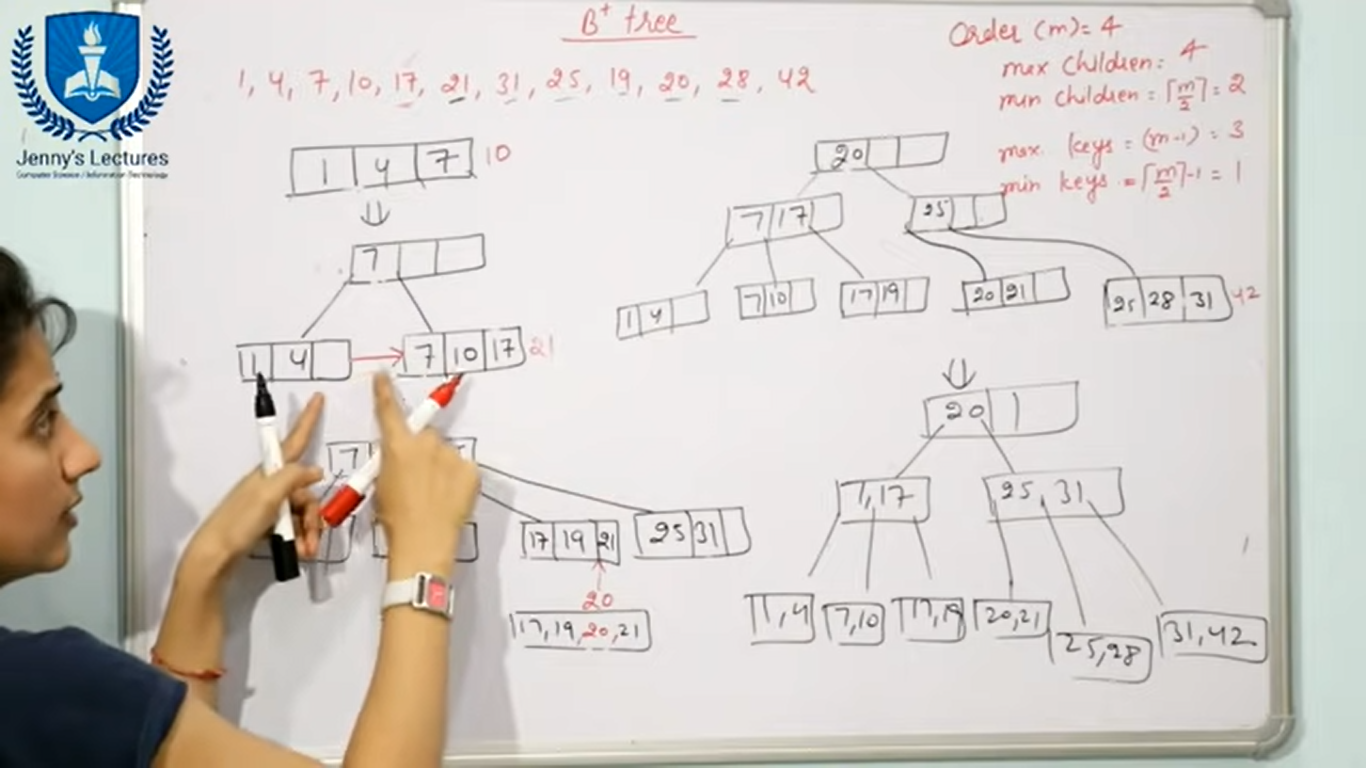 Jenny's Lectures
Computer Science / Information Technology
B+ tree
1, 4, 7, 10, 17, 21, 31, 25, 19, 20, 28, 42
Order (m) = 4
max children: 4
min children = ⌈m/2⌉ = 2
max. keys = (m-1) = 3
min keys = ⌈m/2⌉-1 = 1
1 4 7 10
7
1 4 7 10 17 21
7
17 19 21 25 31
20
17, 19, 20, 21
20
7 17 25
1 4 7 10 17 19 20 21 25 28 31 42
20
7, 17 25, 31
1, 4 7, 10 17, 19 20, 21 25, 28 31, 42